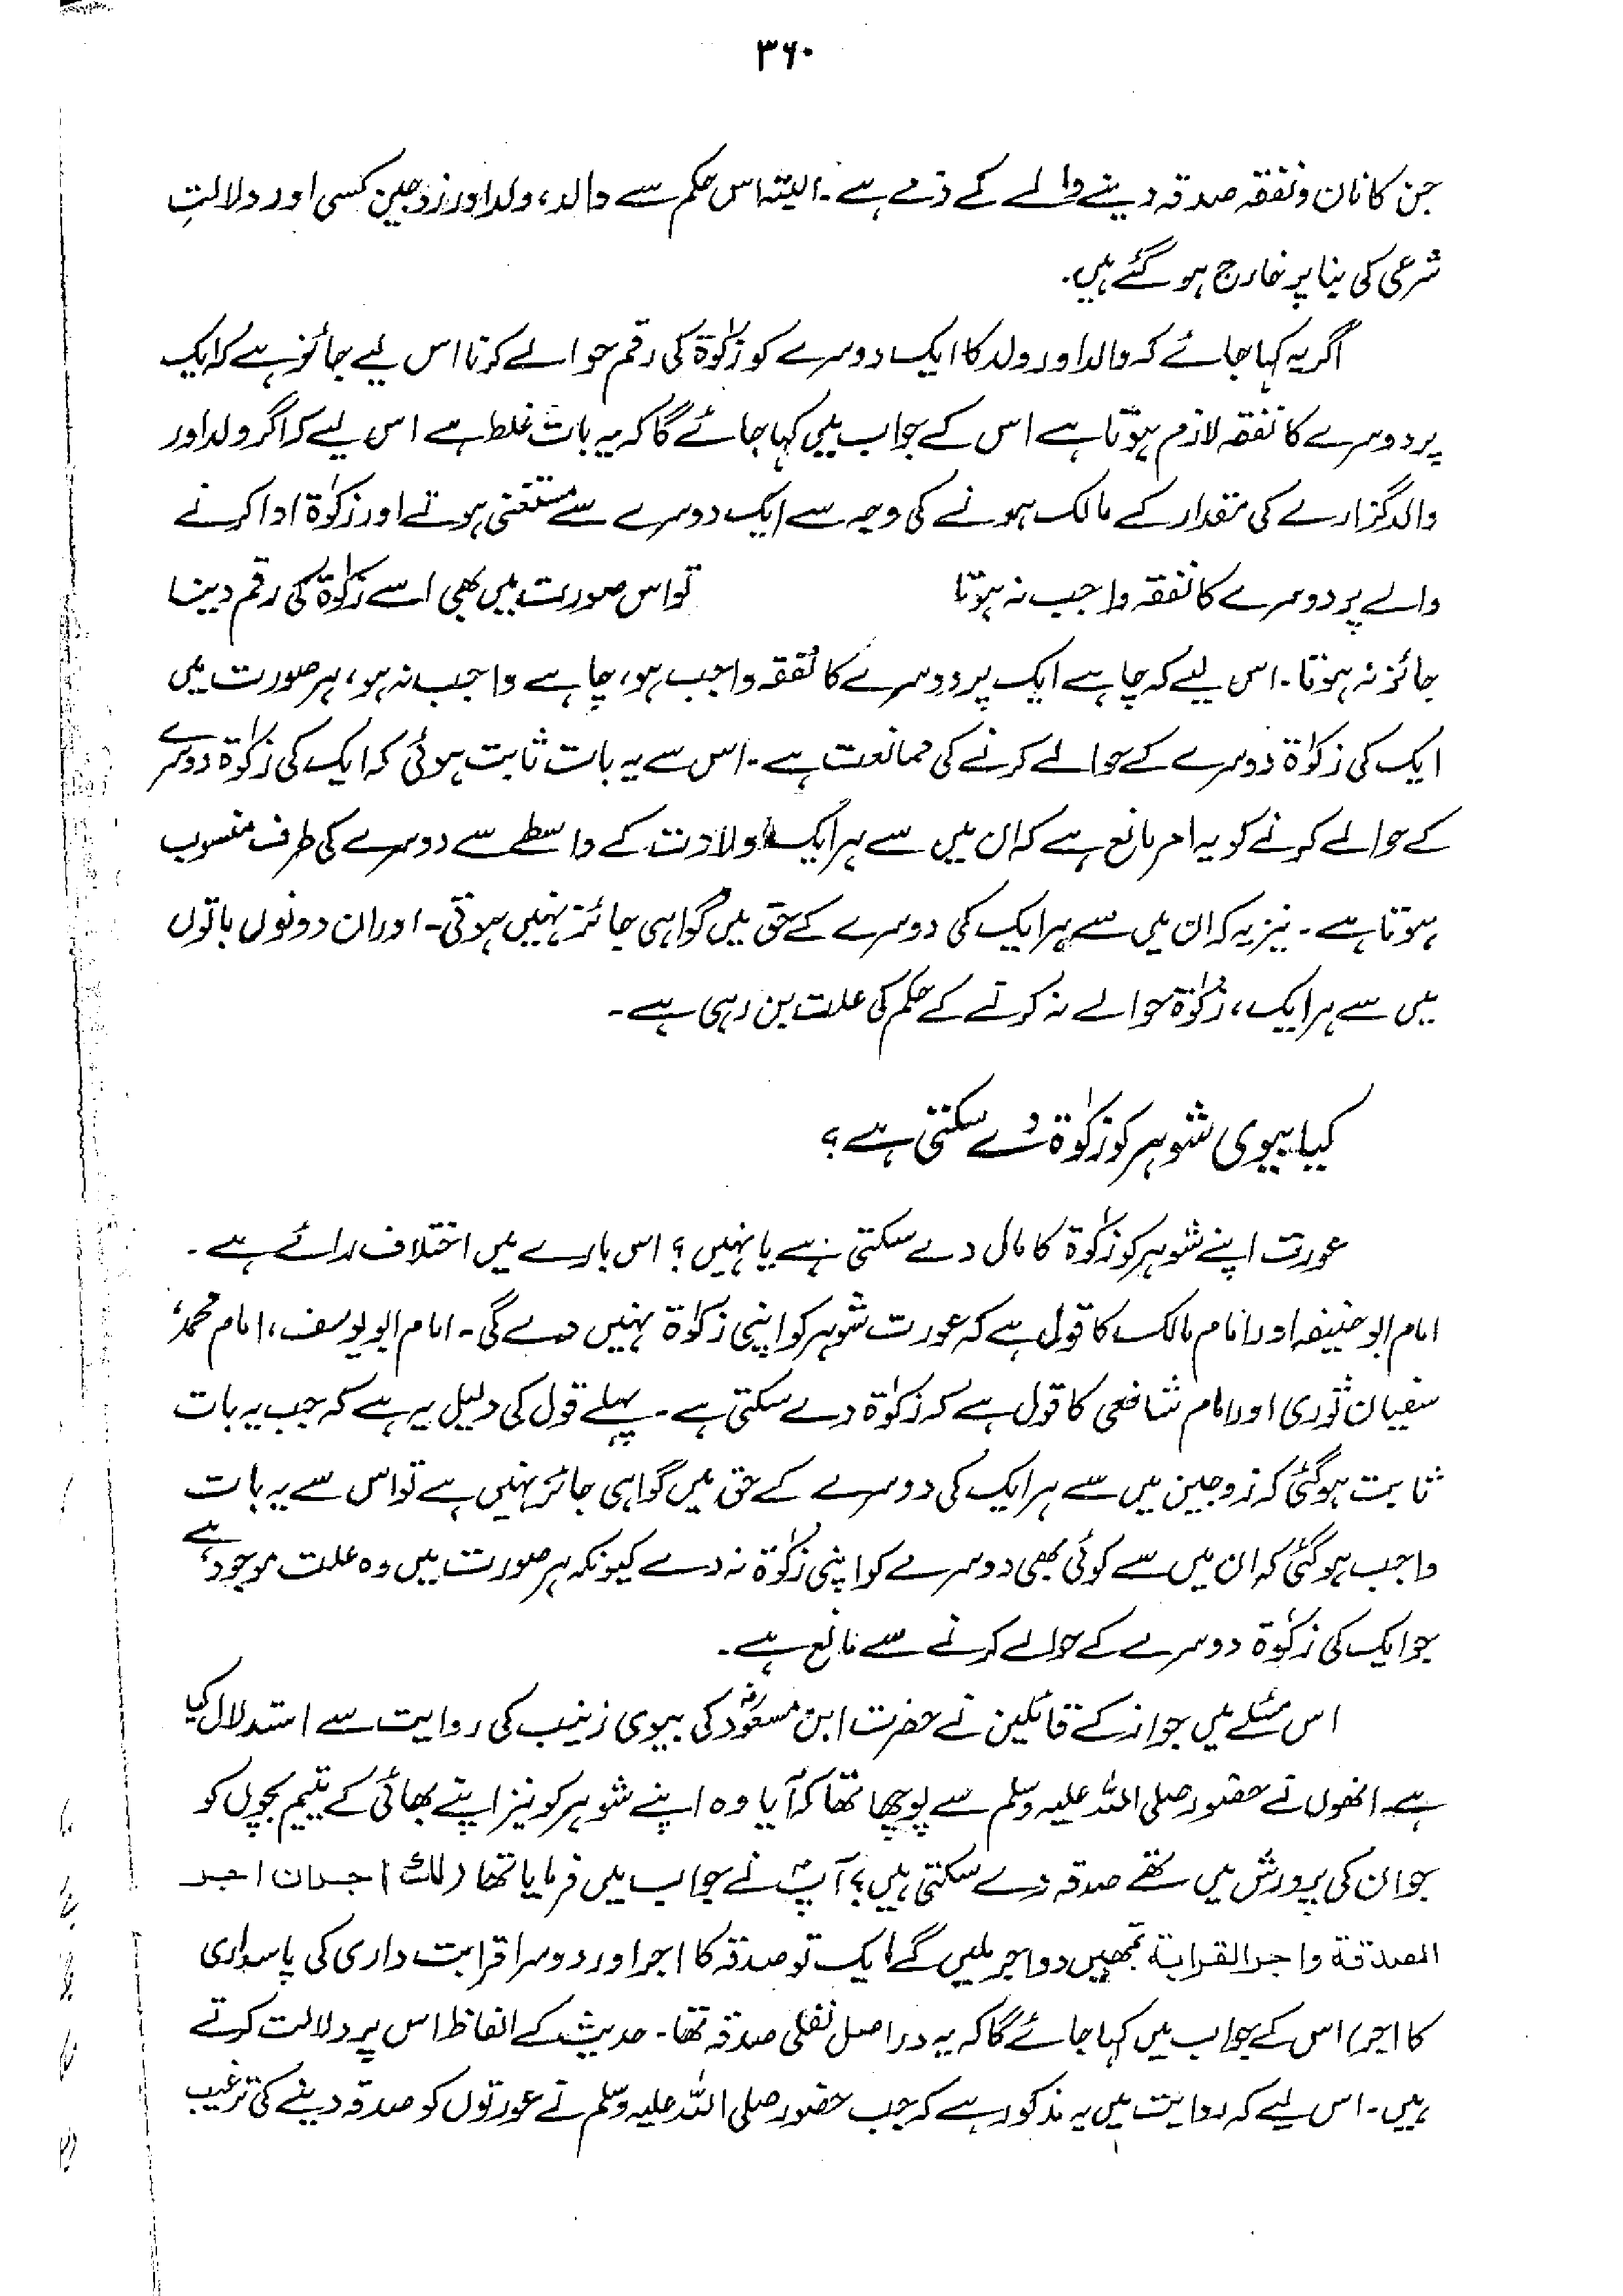 ۳۶۰
جن کا نان و نفقہ صدقہ دینے والے کے ذمے ہے۔ البتہ اس حکم سے والد، ولد اور زوجین کسی اور دلالتِ
شرعی کی بنا پر خارج ہو گئے ہیں۔
اگر یہ کہا جائے کہ والد اور ولد کا ایک دوسرے کو زکوٰۃ کی رقم حوالے کرنا اس لیے جائز ہے کہ ایک
پر دوسرے کا نفقہ لازم ہوتا ہے اس کے جواب میں کہا جائے گا کہ یہ بات غلط ہے اس لیے کہ اگر ولد اور
والد گزارے کی مقدار کے مالک ہونے کی وجہ سے ایک دوسرے سے مستغنی ہوتے اور زکوٰۃ ادا کرنے
والے پر دوسرے کا نفقہ واجب نہ ہوتا تو اس صورت میں بھی اسے زکوٰۃ کی رقم دینا
جائز نہ ہوتا۔ اس لیے کہ چاہے ایک پر دوسرے کا نفقہ واجب ہو، چاہے واجب نہ ہو، ہر صورت میں
ایک کی زکوٰۃ دوسرے کے حوالے کرنے کی ممانعت ہے۔ اس سے یہ بات ثابت ہوئی کہ ایک کی زکوٰۃ دوسرے
کے حوالے کرنے کو یہ امر مانع ہے کہ ان میں سے ہر ایک ولادت کے واسطے سے دوسرے کی طرف منسوب
ہوتا ہے۔ نیز یہ کہ ان میں سے ہر ایک کی دوسرے کے حق میں گواہی جائز نہیں ہوتی۔ اور ان دونوں باتوں
میں سے ہر ایک، زکوٰۃ حوالے نہ کرنے کے حکم کی علت بن رہی ہے۔
کیا بیوی شوہر کو زکوٰۃ دے سکتی ہے؟
عورت اپنے شوہر کو زکوٰۃ کا مال دے سکتی ہے یا نہیں؟ اس بارے میں اختلاف رائے ہے۔
امام ابو حنیفہ اور امام مالک کا قول ہے کہ عورت شوہر کو اپنی زکوٰۃ نہیں دے گی۔ امام ابو یوسف، امام محمد،
سفیان ثوری اور امام شافعی کا قول ہے کہ زکوٰۃ دے سکتی ہے۔ پہلے قول کی دلیل یہ ہے کہ جب یہ بات
ثابت ہو گئی کہ زوجین میں سے ہر ایک کی دوسرے کے حق میں گواہی جائز نہیں ہے تو اس سے یہ بات
واجب ہو گئی کہ ان میں سے کوئی بھی دوسرے کو اپنی زکوٰۃ نہ دے کیونکہ ہر صورت میں وہ علت موجود ہے
جو ایک کی زکوٰۃ دوسرے کے حوالے کرنے سے مانع ہے۔
اس مسئلے میں جواز کے قائلین نے حضرت ابن مسعودؓ کی بیوی زینب کی روایت سے استدلال کیا
ہے۔ انھوں نے حضور صلی اللہ علیہ وسلم سے پوچھا تھا کہ آیا وہ اپنے شوہر کو نیز اپنے بھائی کے یتیم بچوں کو
جو ان کی پرورش میں تھے صدقہ دے سکتی ہیں؟ آپؐ نے جواب میں فرمایا تھا (لك اجران اجر
الصدقة واجر القرابة تمھیں دو اجر ملیں گے ایک تو صدقہ کا اجر اور دوسرا قرابت داری کی پاسداری
کا اجر) اس کے جواب میں کہا جائے گا کہ یہ دراصل نفلی صدقہ تھا۔ حدیث کے الفاظ اس پر دلالت کرتے
ہیں۔ اس لیے کہ روایت میں یہ مذکور ہے کہ جب حضور صلی اللہ علیہ وسلم نے عورتوں کو صدقہ دینے کی ترغیب